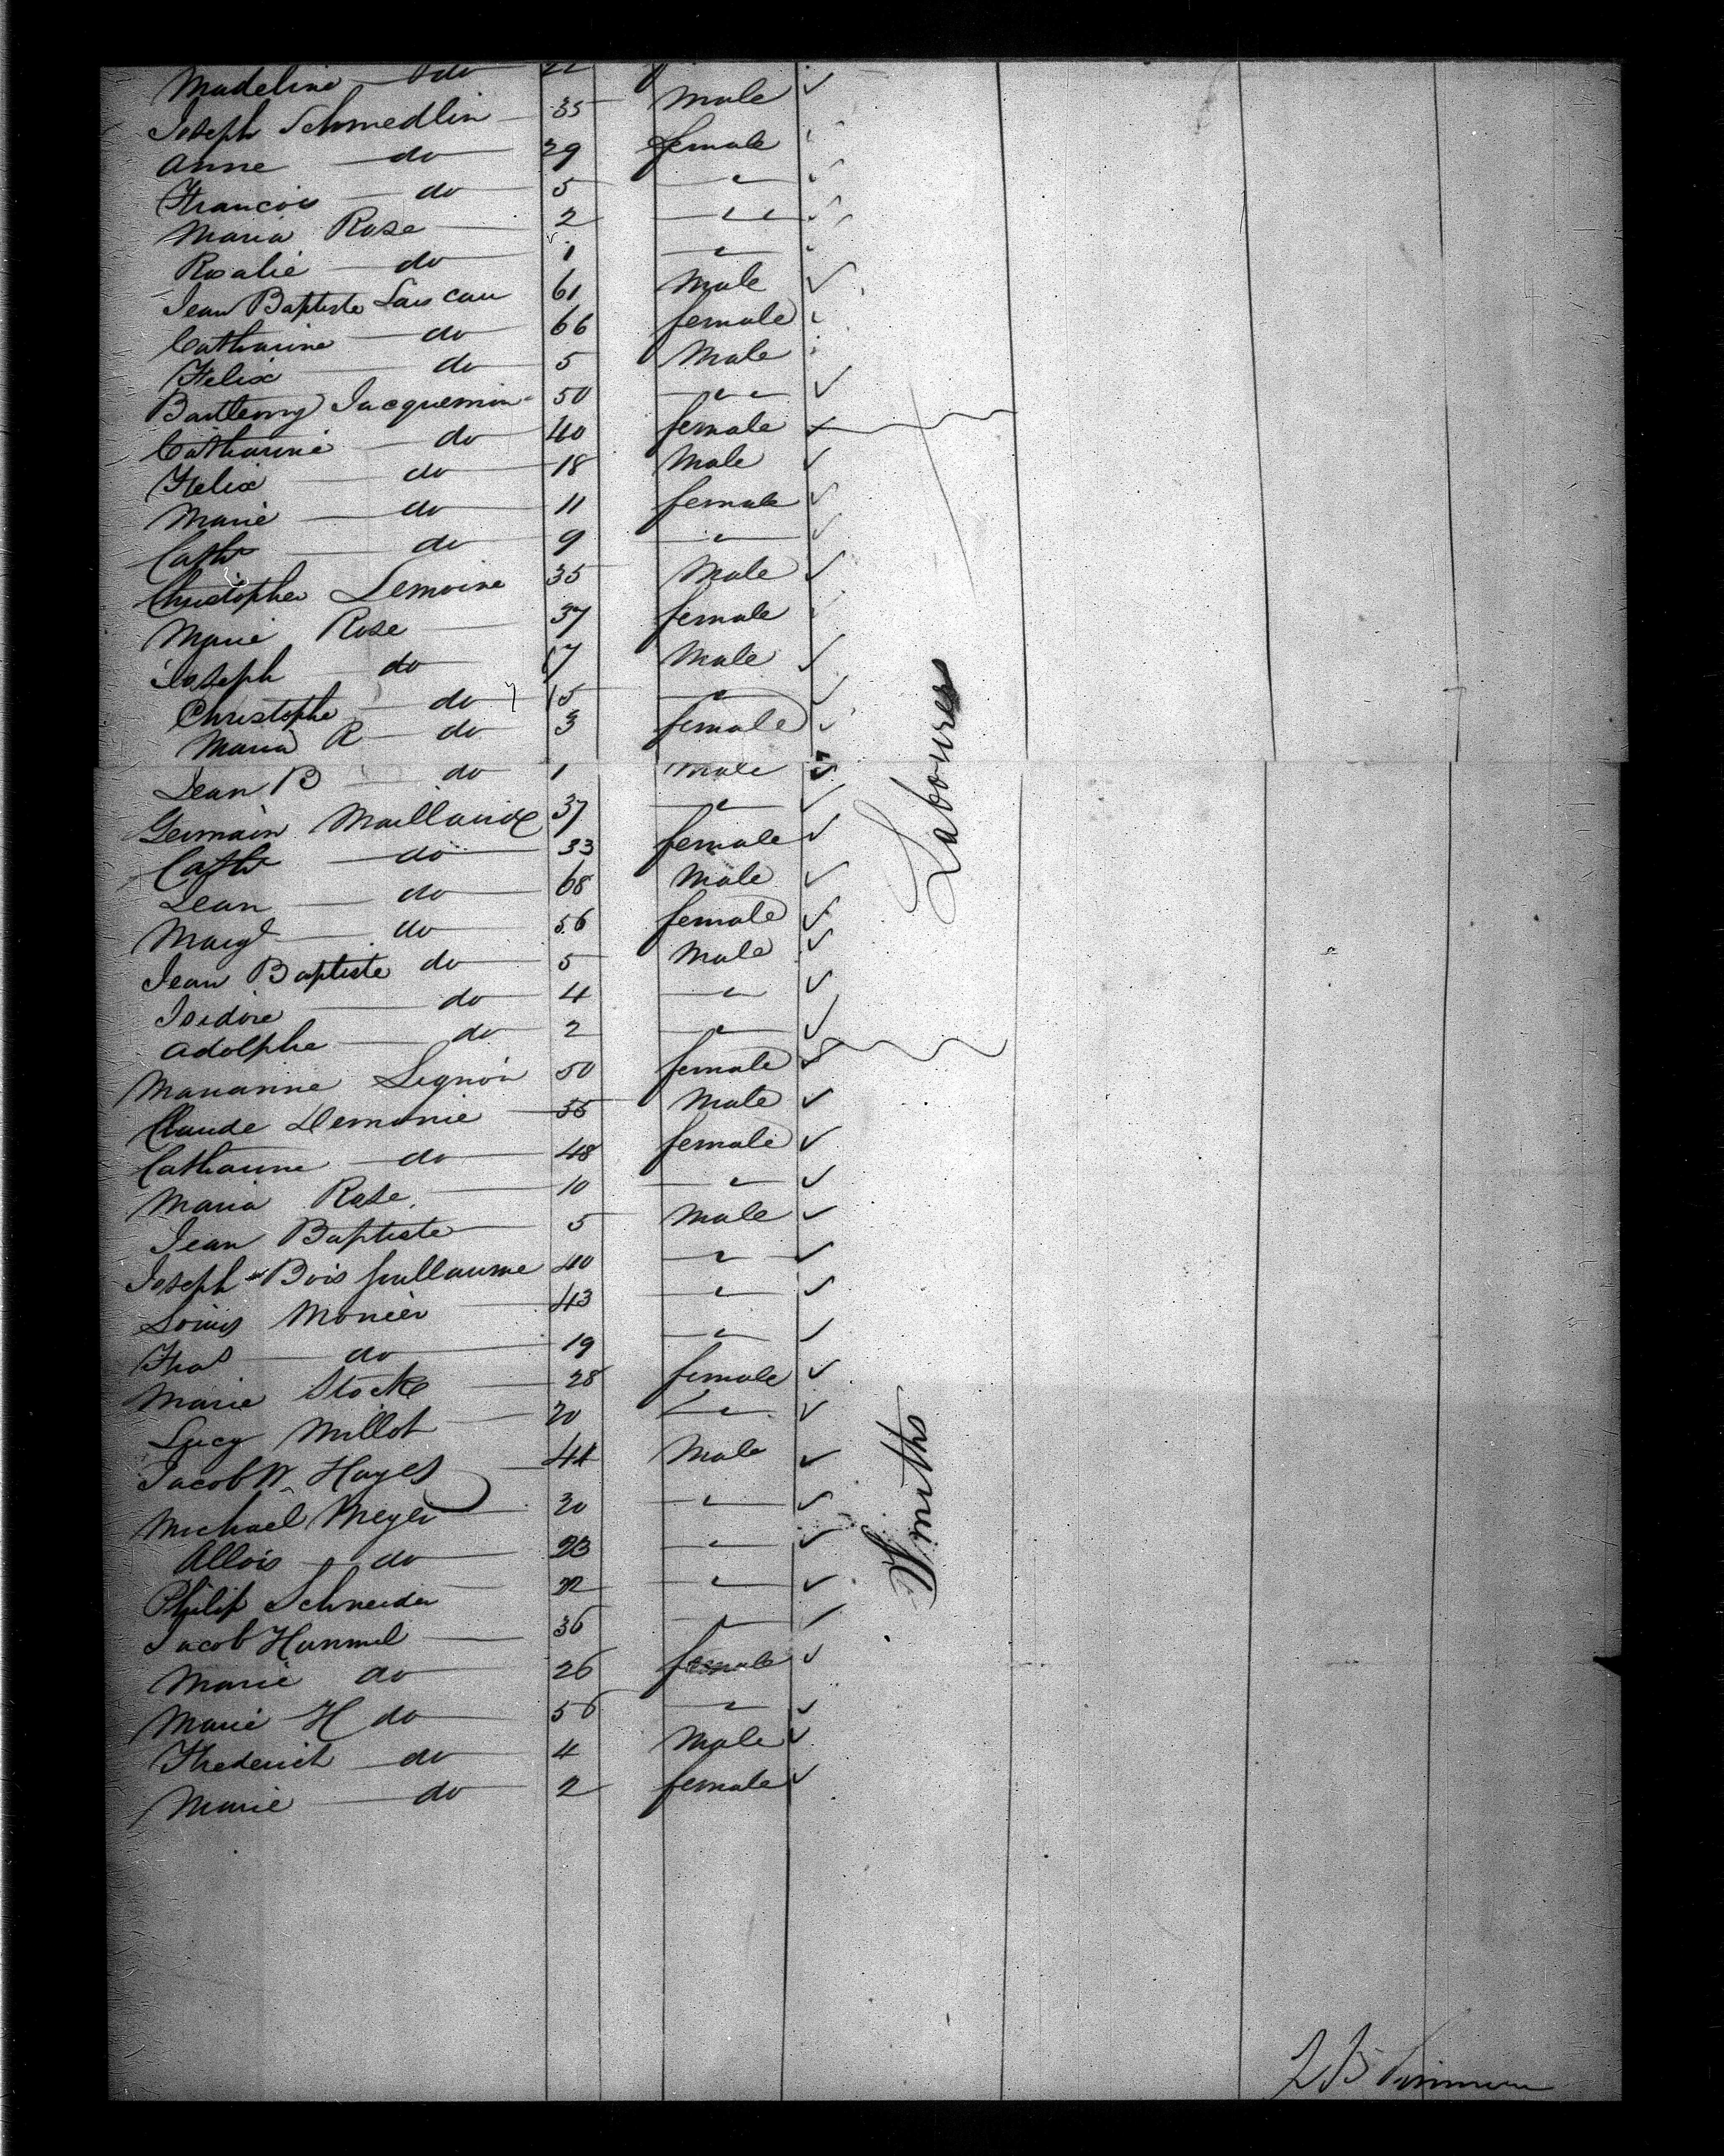 Madeline do 22
Joseph Schmedlin 35 Male
Anne do 29 female
Francois do 5 "
Maria Rose 2 "
Rosalie do 1 "
Jean Baptiste 61 Male
Catharine do 66 female
Felix do 5 Male
Bartlemy Jacquemin 50 "
Catharine do 40 female
Felix do 18 Male
Marie do 11 female
Cath do 9 "
Christophe Lemoine 35 Male
Marie Rose 37 female
Joseph do 17 Male
Christophe do 15 "
Maria R do 3 female
Jean B do 1 Male
Germain Maillard 37 "
Cath do 33 female
Jean do 68 Male
Margt do 56 female
Jean Baptiste do 5 Male
Isidore do 4 "
Adolphe do 2 "
Labourers
Marianne Lignon 50 female
Claude Demonie 55 Male
Catharine do 48 female
Maria Rose 10 "
Jean Baptiste 5 Male
Joseph Bois Guillaume 40 "
Louis Monier 43 "
Fras do 19 "
Marie Stocke 28 female
Lucy Millot 20 "
Jacob W Hayes 41 Male
Michael Meyer 30 "
Allois do 23 "
Philip Schneider 22 "
Smiths
Jacob Hummel 36 "
Marie do 26 female
Marie H do 56 "
Frederick do 4 Male
Marie do 2 female